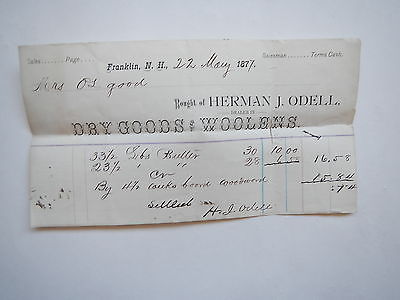 Sales Page Salesman Terms Cash.
Franklin, N. H., 22 May 1877.
Mrs O S good
Bought of HERMAN J. ODELL,
DEALER IN
DRY GOODS & WOOLENS.
33 1/2 Lbs Butter 30 10.00
23 1/2 " 28 6.58 16.58
Cr
By 4 1/2 cords wood 15.84
Settled .74
H. J. Odell